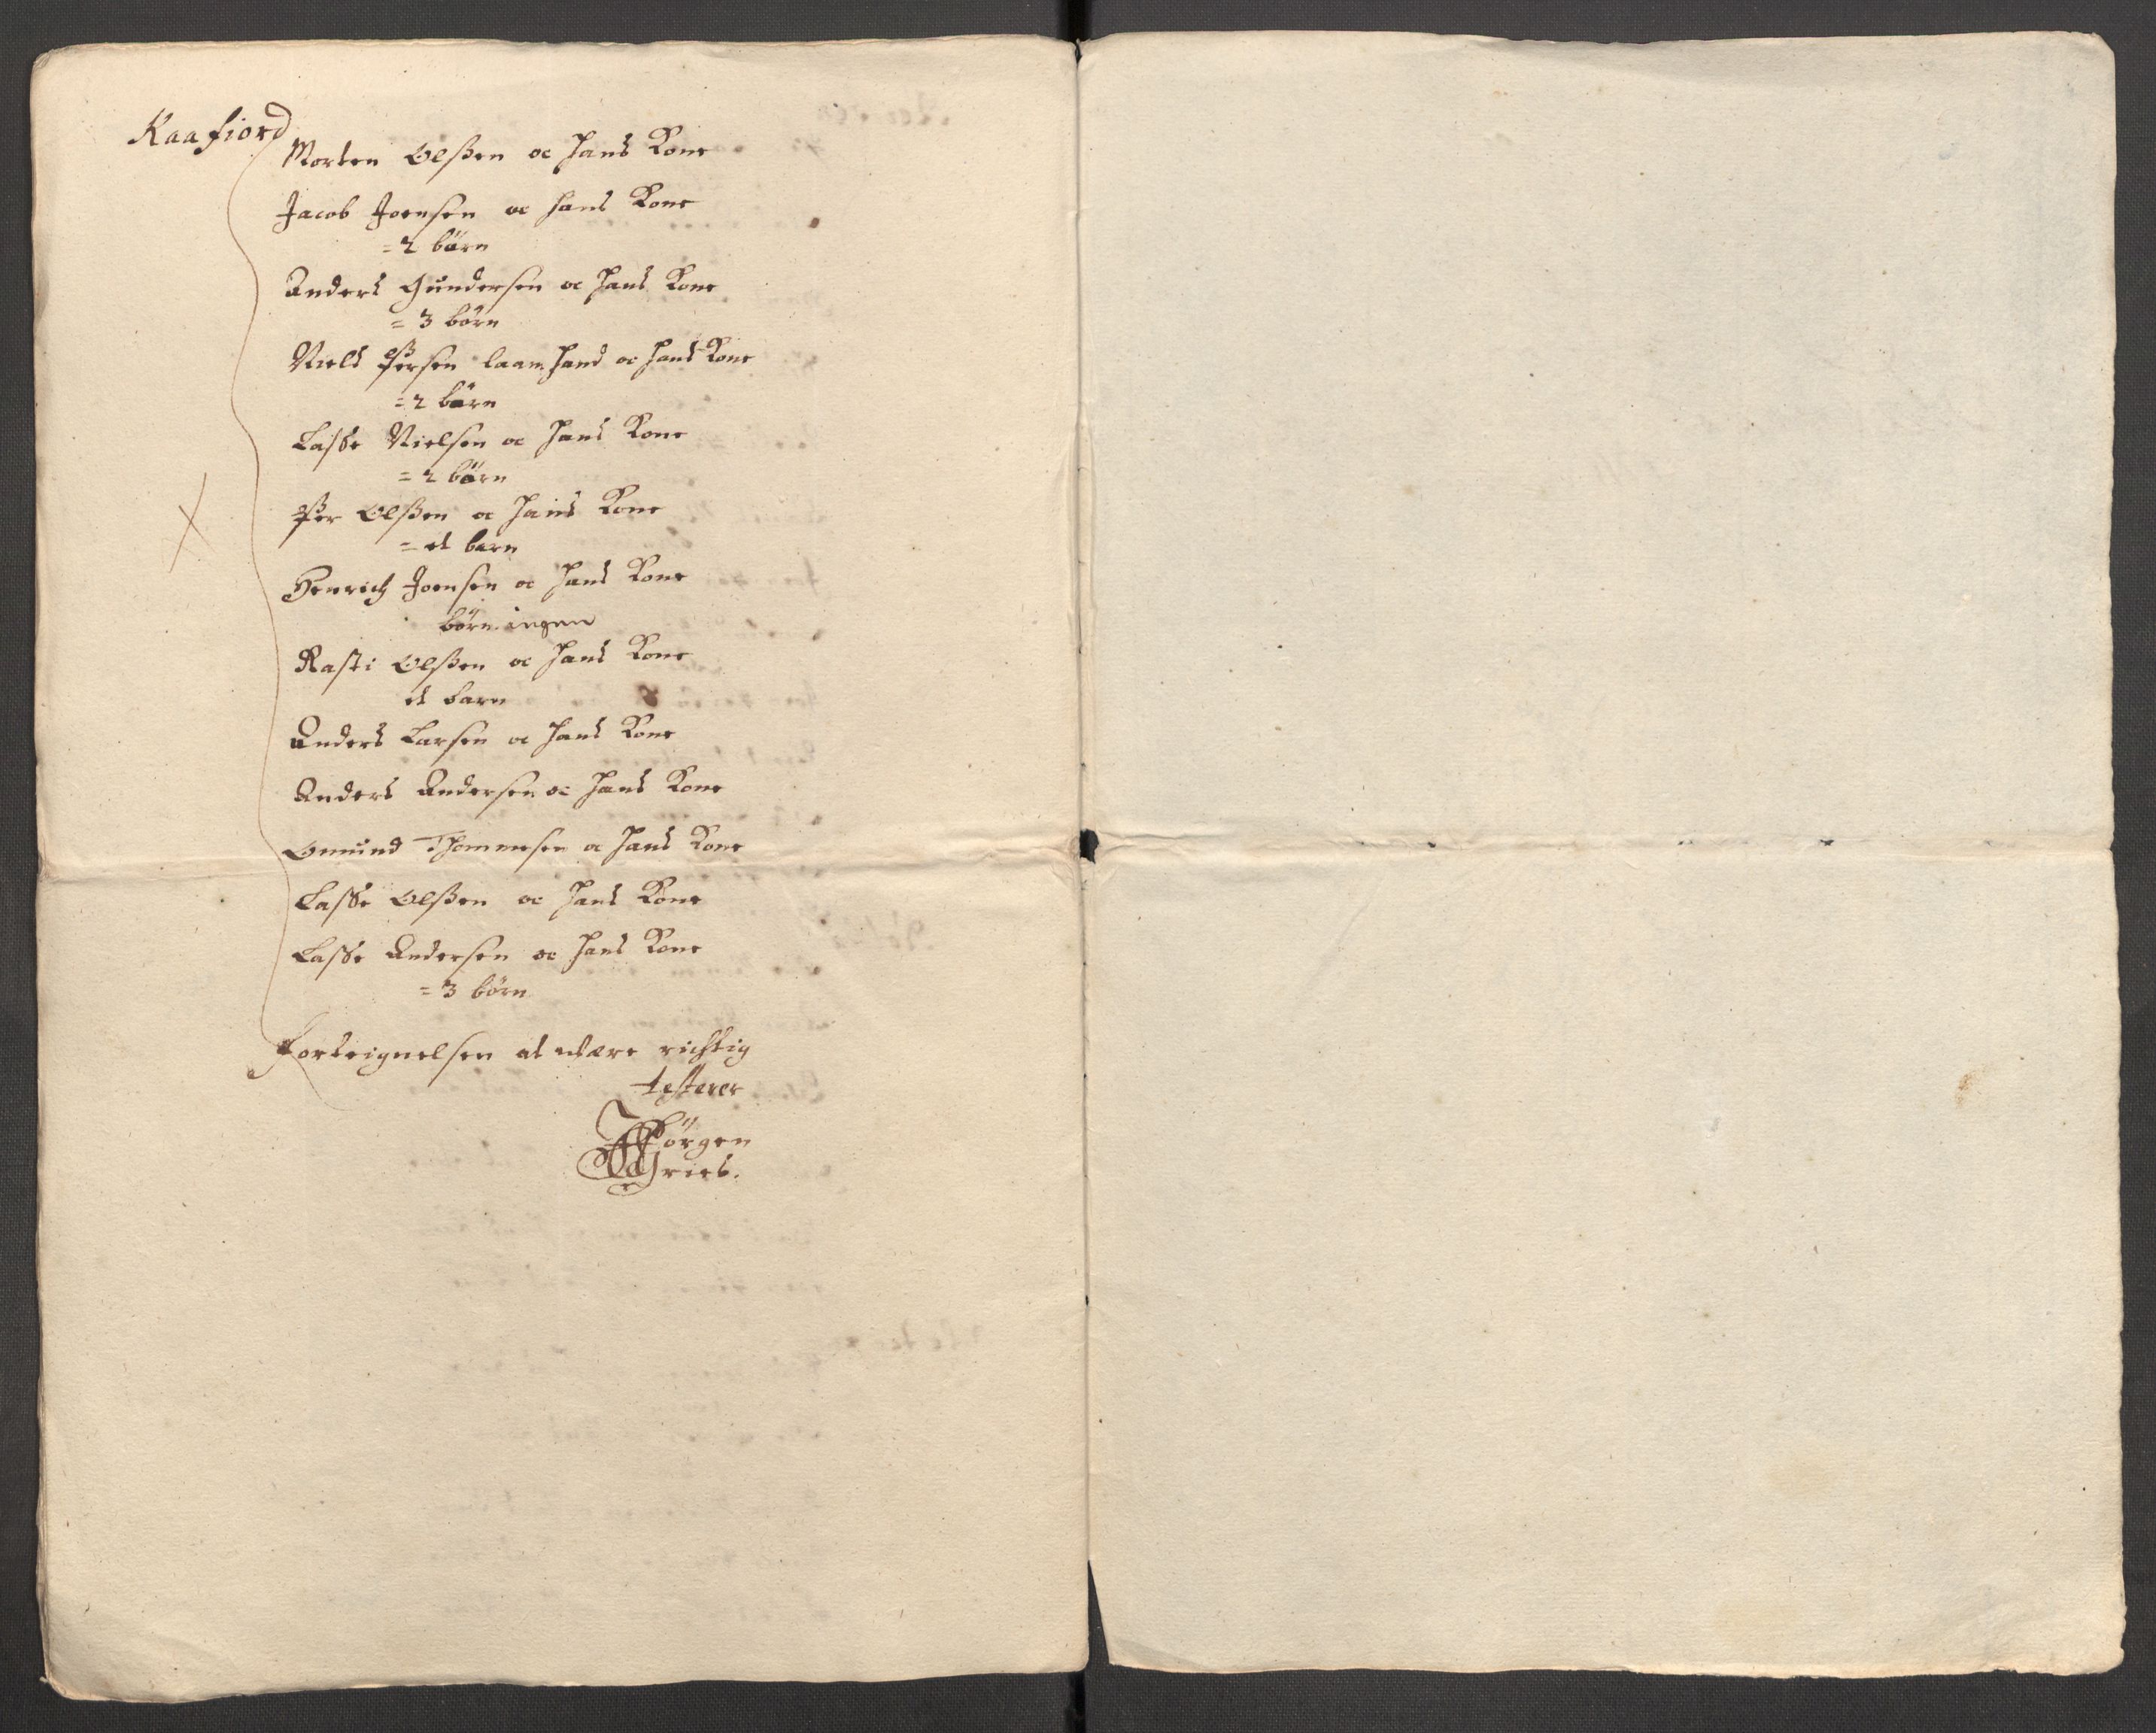 Kaafiord
Morten Olßen oc hans Kone
Jacob Joensen oc hans Kone
= 2 börn
Anders Gundersen oc hans Kone
= 3 börn
Niels Persen laam hand oc hans Kone
= 2 börn
Lasse Nielsen oc hans Kone
= 2 börn
Per Olßen oc hans Kone
= et barn
Henrich Joensen oc hans Kone
börn ingen
Rasti Olßen oc hans Kone
et barn
Anders Larsen oc hans Kone
Anders Andersen oc hans Kone
Omund Thommesen oc hans Kone
Lasse Olßen oc hans Kone
Lasse Andersen oc hans Kone
= 3 börn
Forteignelsen at være richtig
testerer
Jörgen